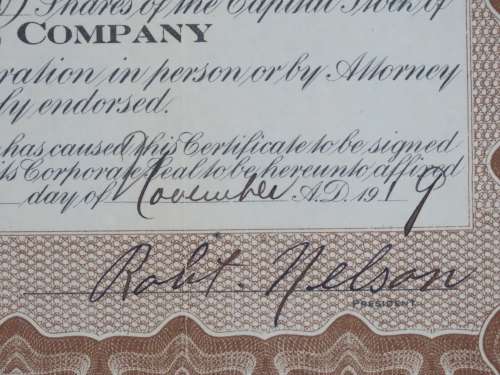 Shares of the Capital Stock of
COMPANY
ration in person or by Attorney
ly endorsed.
has caused this Certificate to be signed
ts Corporate Seal to be hereunto affixed
day of November A.D. 1919
Robt. Nelson
PRESIDENT